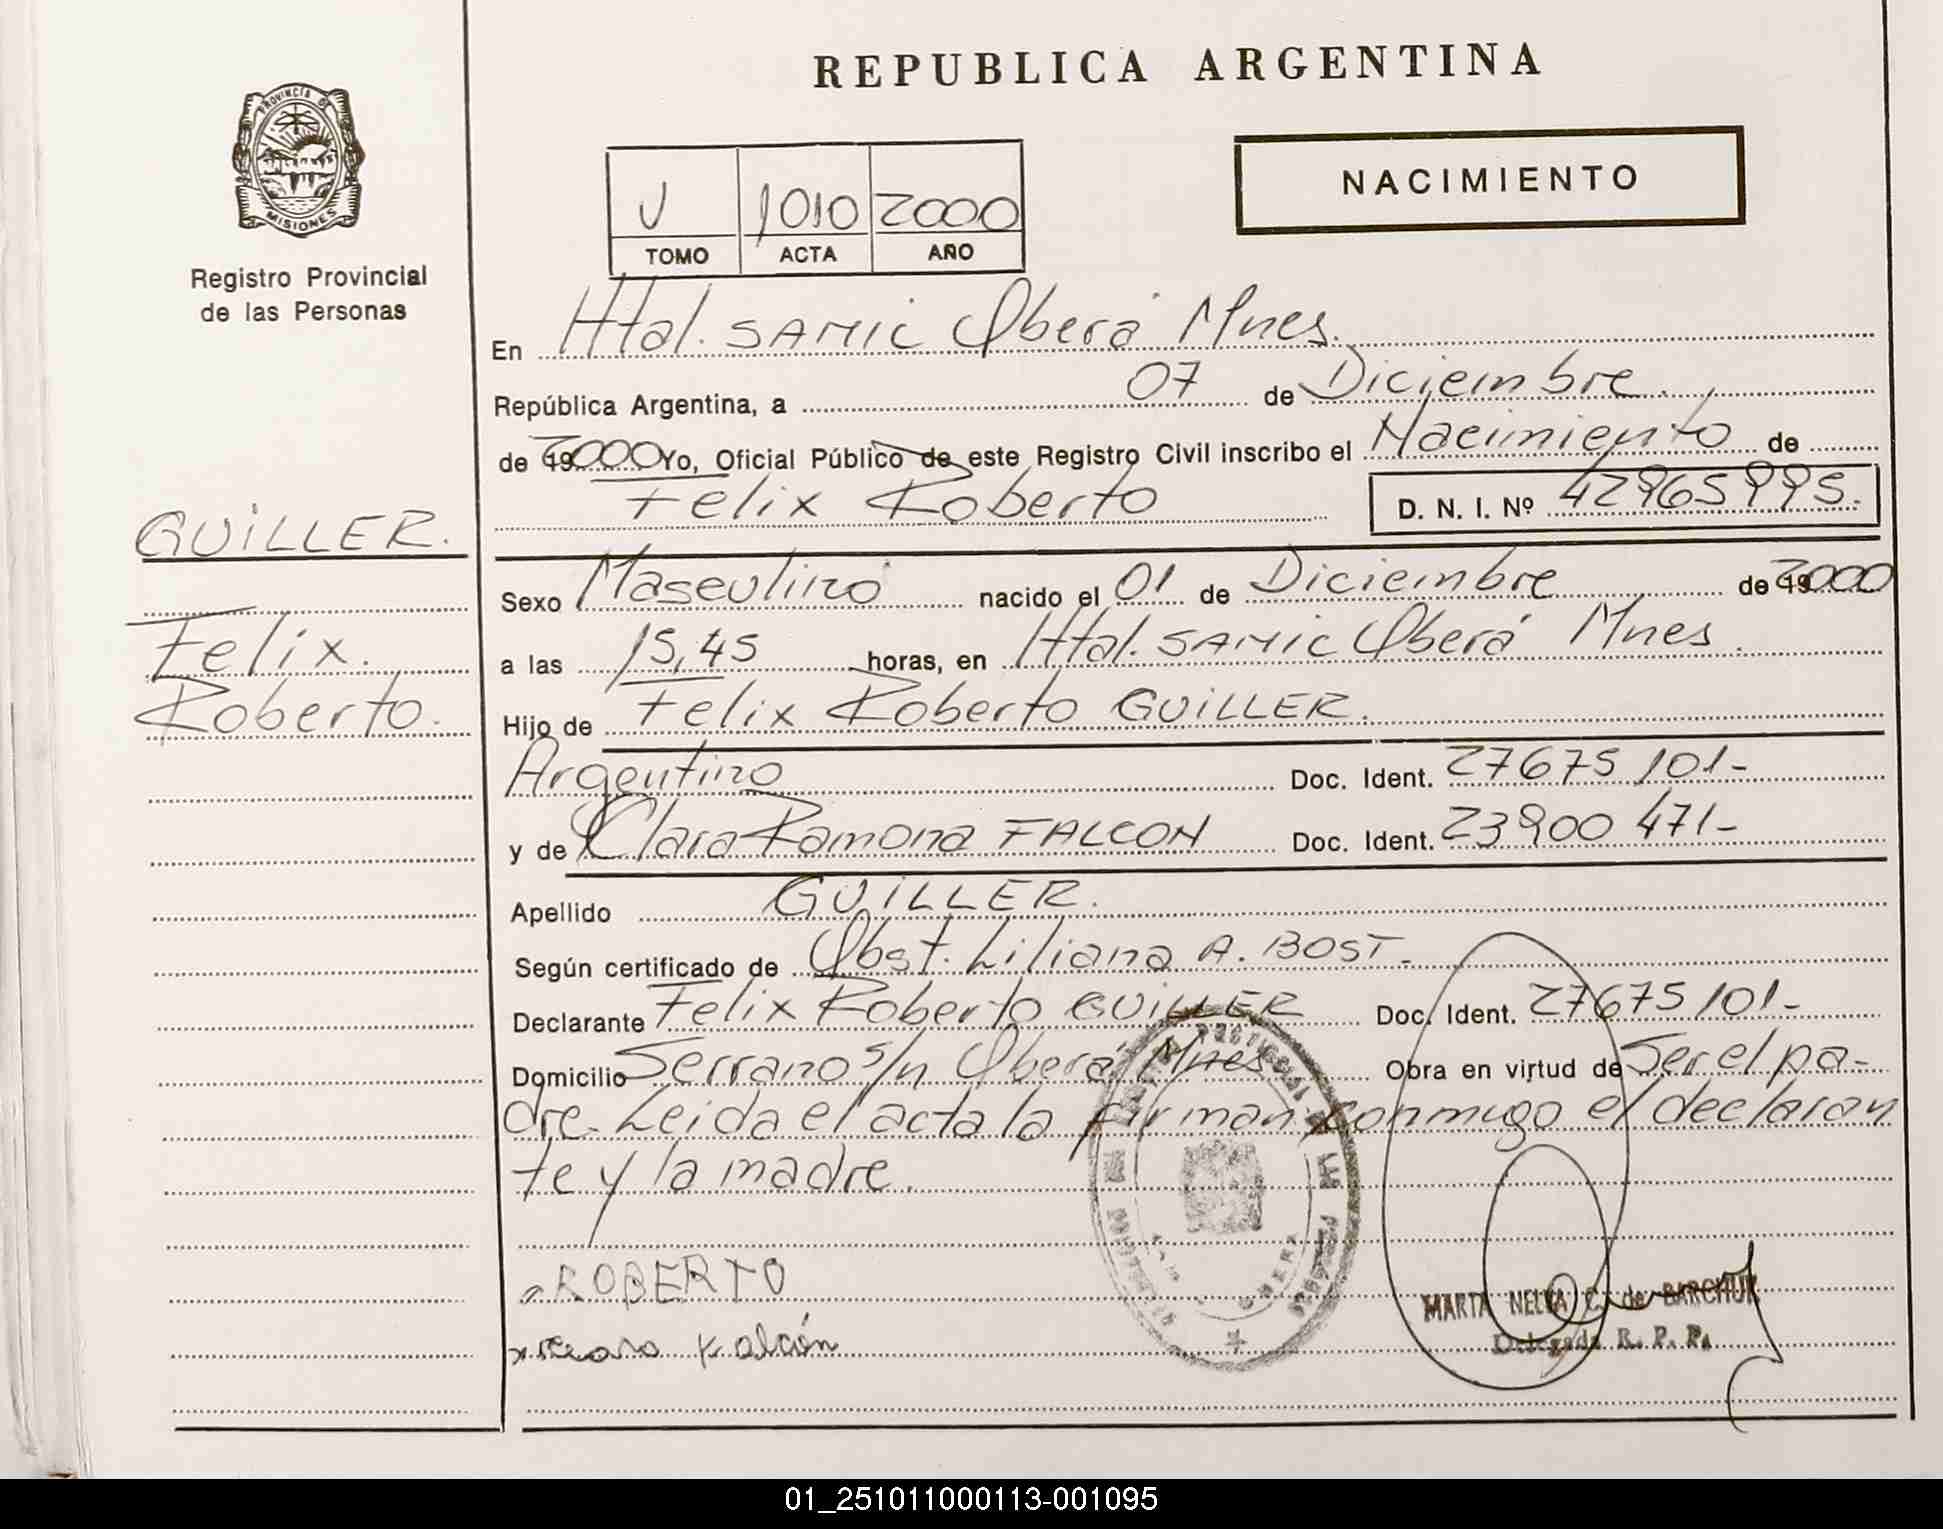 REPUBLICA ARGENTINA
PROVINCIA DE
MISIONES
Registro Provincial
de las Personas
NACIMIENTO
U 1010 2000
TOMO ACTA AÑO
En Htal. SAMIC Oberá Mnes.
República Argentina, a 07 de Diciembre.
de 2000 Yo, Oficial Público de este Registro Civil inscribo el Nacimiento de
Felix Roberto D. N. I. Nº 42965995.
GUILLER.
Felix.
Roberto.
Sexo Masculino nacido el 01 de Diciembre de 2000
a las 15,45 horas, en Htal. SAMIC Oberá Mnes.
Hijo de Felix Roberto GUILLER.
Argentino Doc. Ident. 27675101-
y de Clara Ramona FALCON Doc. Ident. 23900471-
Apellido GUILLER.
Según certificado de Obst. Liliana A. BOST.
Declarante Felix Roberto GUILLER Doc. Ident. 27675101-
Domicilio Serrano s/n Oberá Mnes Obra en virtud de Ser el pa-
dre. Leida el acta la firman conmigo el declaran
te y la madre.
ROBERTO
Falcón
MARTA NELVA C. de BARCHUK
Delegada R. P. P.
01_251011000113-001095